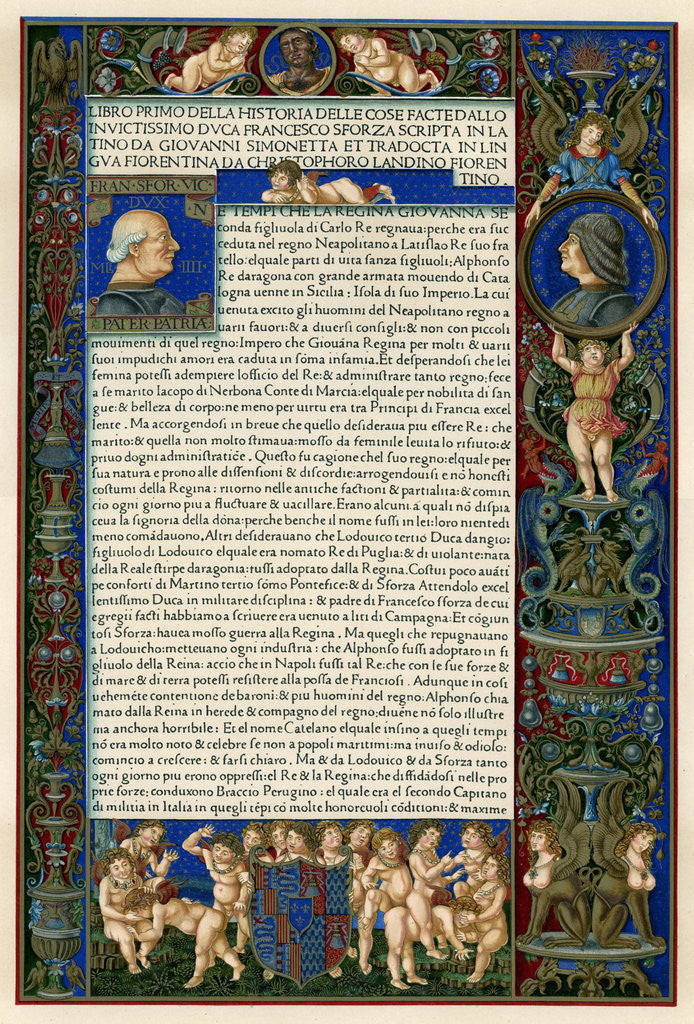 LIBRO PRIMO DELLA HISTORIA DELLE COSE FACTE DALLO
INVICTISSIMO DVCA FRANCESCO SFORZA SCRIPTA IN LA
TINO DA GIOVANNI SIMONETTA ET TRADOCTA IN LIN
GVA FIORENTINA DA CHRISTOPHORO LANDINO FIOREN
TINO .
FRAN · SFOR · VIC
· DVX ·
N
MLL IIII
PATER PATRIÆ
E TEMPI CHE LA REGINA GIOVANNA SE
conda figliuola di Carlo Re regnaua: perche era suc
ceduta nel regno Neapolitano a Latislao Re suo fra
tello: elquale parti di uita sanza figliuoli: Alphonso
Re daragona con grande armata mouendo di Cata
logna uenne in Sicilia: Isola di suo Imperio. La cui
uenuta excito gli huomini del Neapolitano regno a
uarii fauori: & a diuersi consigli: & non con piccoli
mouimenti di quel regno: Impero che Giouãna Regina per molti & uarii
suoi impudichi amori era caduta in sóma infamia. Et desperandosi che lei
femina potessi adempiere lofficio del Re: & administrare tanto regno: fece
a se marito Iacopo di Nerbona Conte di Marcia: elquale per nobilita di san
gue: & belleza di corpo: ne meno per uirtu era tra Principi di Francia excel
lente . Ma accorgendosi in breue che quello desideraua piu essere Re: che
marito: & quella non molto stimaua: mosso da feminile leuita lo rifiuto: &
priuo dogni administratiõe . Questo fu cagione chel suo regno: elquale per
sua natura e prono alle dissensioni & discordie: arrogendouisi e nõ honesti
costumi della Regina: ritorno nelle antiche factioni & partialita: & comin
cio ogni giorno piu a fluctuare & uacillare. Erano alcuni a quali nõ dispia
ceua la signoria della dõna: perche benche il nome fussi in lei: loro nientedi
meno comãdauono. Altri desiderauano che Lodouico tertio Duca dangio:
figliuolo di Lodouico elquale era nomato Re di Puglia: & di uiolante: nata
della Reale stirpe daragona: fussi adoptato dalla Regina. Costui poco auãti
pe conforti di Martino tertio sõmo Pontefice: & di Sforza Attendolo excel
lentissimo Duca in militare disciplina: & padre di Francesco sforza de cui
egregii facti habbiamo a scriuere era uenuto a liti di Campagna: Et cõgiun
tosi Sforza: hauea mosso guerra alla Regina . Ma quegli che repugnauano
a Lodouicho: metteuano ogni industria: che Alphonso fussi adoptato in fi
gliuolo della Reina: accio che in Napoli fussi tal Re: che con le sue forze &
di mare & di terra potessi resistere alla possa de Franciosi . Adunque in cosi
uehemẽte contentione de baroni: & piu huomini del regno: Alphonso chia
mato dalla Reina in herede & compagno del regno: diuẽne nõ solo illustre
ma anchora horribile: Et el nome Catelano elquale insino a quegli tempi
nõ era molto noto & celebre se non a popoli maritimi: ma inuiso & odioso:
comincio a crescere: & farsi chiaro . Ma & da Lodouico & da Sforza tanto
ogni giorno piu erono oppressi: el Re & la Regina: che diffidãdosi nelle pro
prie forze: conduxono Braccio Perugino: el quale era el secondo Capitano
di militia in Italia in quegli tẽpi cõ molte honoreuoli cõditioni: & maxime